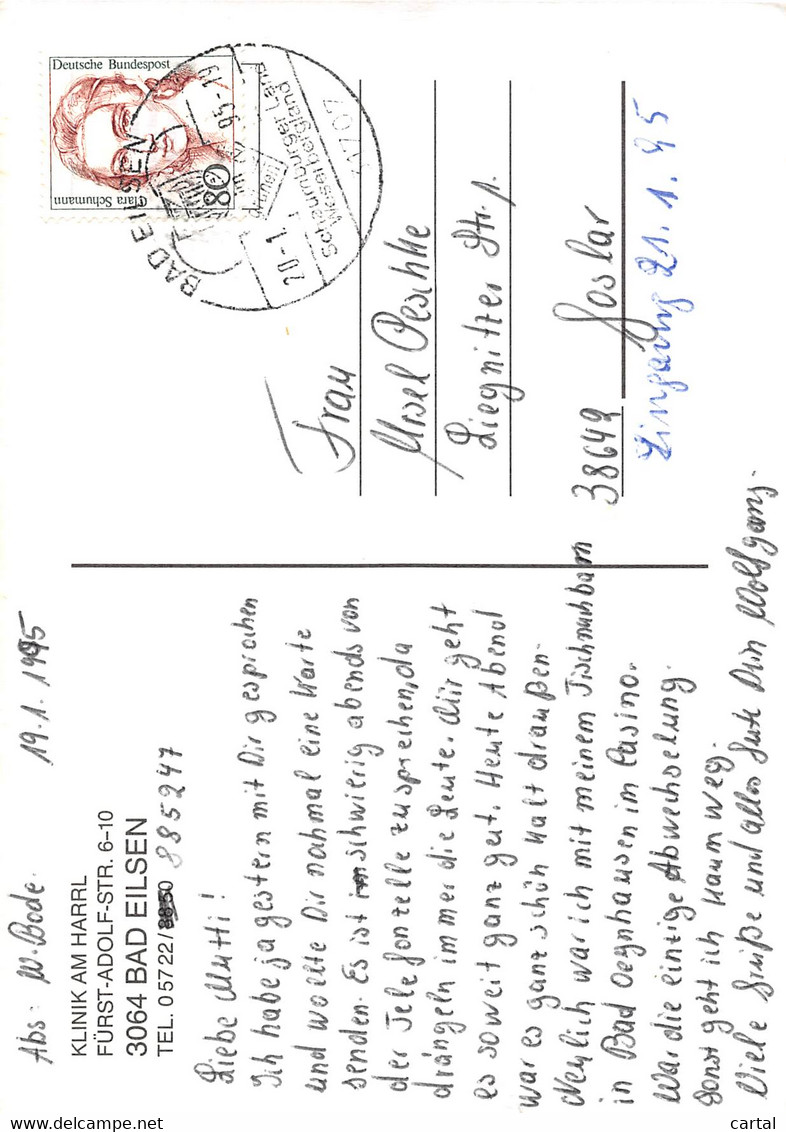 Abs: W. Bode. 19.1.1995
KLINIK AM HARRL
FÜRST-ADOLF-STR. 6-10
3064 BAD EILSEN
TEL. 05722/8850 885247
Liebe Mutti!
Ich habe ja gestern mit Dir gesprochen
und wollte Dir nochmal eine Karte
senden. Es ist schwierig abends von
der Telefonzelle zu sprechen, da
drängeln immer die Leute. Mir geht
es soweit ganz gut. Heute Abend
war es ganz schön kalt draußen.
Neulich war ich mit meinem Tischnachbarn
in Bad Oeynhausen im Casino.
War die einzige Abwechselung.
Sonst geht ich kaum weg.
Viele Grüße und alles Gute Dein Wolfgang.
Deutsche Bundespost
80
Clara Schumann
BAD EILSEN
20.-1. 95-19
Schaumburger Land
Weserbergland
Frau
Ursel Peschke
Liegnitzer Str. 1.
38642 Goslar
Eingang 21.1.95
www.delcampe.net
cartal